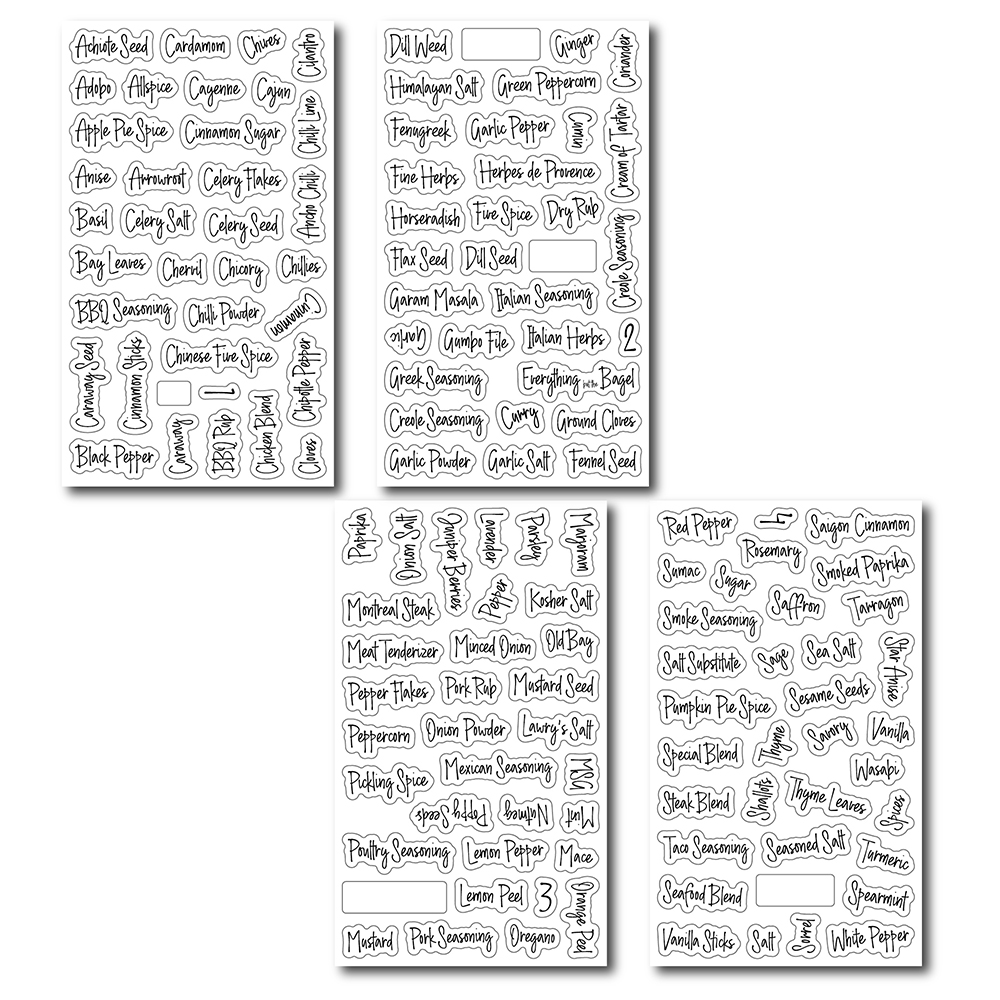 Achiote Seed
Cardamom
Chives
Cilantro
Adobo
Allspice
Cayenne
Cajun
Apple Pie Spice
Cinnamon Sugar
Chili Lime
Anise
Arrowroot
Celery Flakes
Ancho Chili
Basil
Celery Salt
Celery Seed
Bay Leaves
Chervil
Chicory
Chillies
BBQ Seasoning
Chili Powder
Cinnamon
Caraway Seed
Cinnamon Sticks
Chinese Five Spice
Chipotle Pepper
1
Black Pepper
Caraway
BBQ Rub
Chicken Blend
Cloves
Dill Weed
Ginger
Coriander
Himalayan Salt
Green Peppercorn
Fenugreek
Garlic Pepper
Cumin
Cream of Tartar
Fine Herbs
Herbes de Provence
Horseradish
Five Spice
Dry Rub
Creole Seasoning
Flax Seed
Dill Seed
Garam Masala
Italian Seasoning
Garlic
Gumbo File
Italian Herbs
2
Greek Seasoning
Everything but the Bagel
Creole Seasoning
Curry
Ground Cloves
Garlic Powder
Garlic Salt
Fennel Seed
Paprika
Onion Salt
Juniper Berries
Lavender
Parsley
Marjoram
Montreal Steak
Pepper
Kosher Salt
Meat Tenderizer
Minced Onion
Old Bay
Pepper Flakes
Pork Rub
Mustard Seed
Peppercorn
Onion Powder
Lawry's Salt
Pickling Spice
Mexican Seasoning
MSG
Poppy Seeds
Nutmeg
Mint
Poultry Seasoning
Lemon Pepper
Mace
Lemon Peel
3
Orange Peel
Mustard
Pork Seasoning
Oregano
Red Pepper
4
Saigon Cinnamon
Rosemary
Sumac
Sugar
Smoked Paprika
Smoke Seasoning
Saffron
Tarragon
Salt Substitute
Sage
Sea Salt
Star Anise
Pumpkin Pie Spice
Sesame Seeds
Special Blend
Thyme
Savory
Vanilla
Wasabi
Steak Blend
Shallots
Thyme Leaves
Spices
Taco Seasoning
Seasoned Salt
Turmeric
Seafood Blend
Spearmint
Vanilla Sticks
Salt
Sorrel
White Pepper